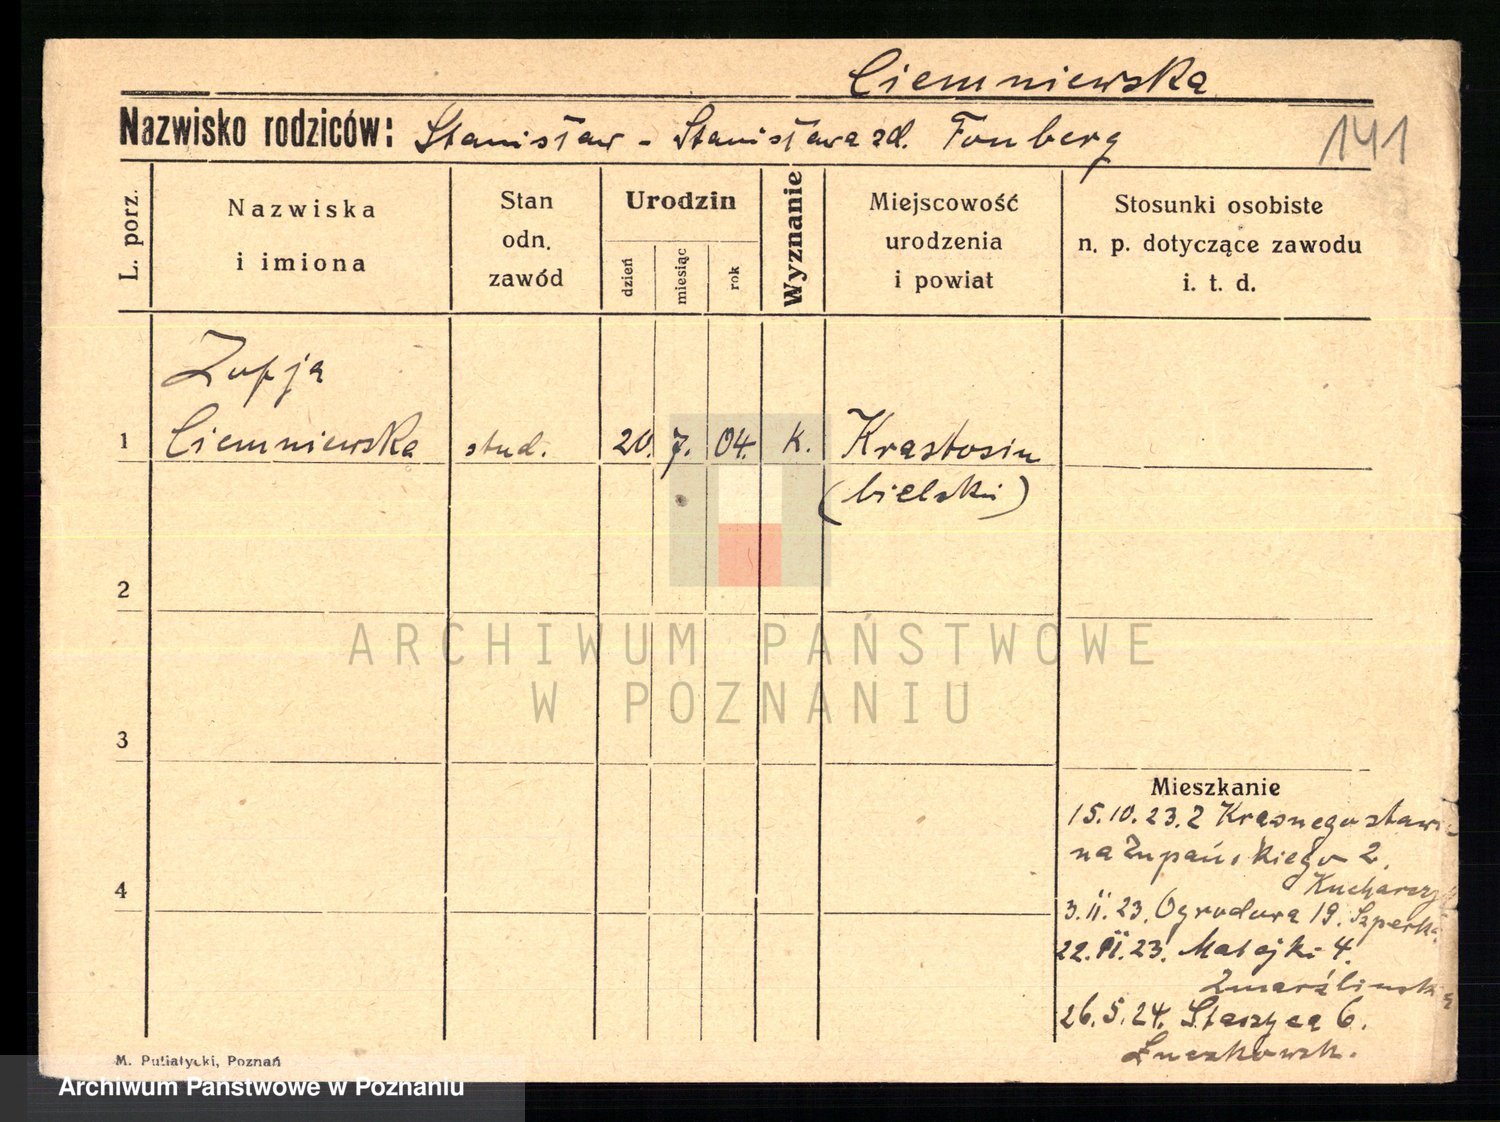 Ciemniewska
Nazwisko rodziców: Stanisław - Stanisława zd. Fonberg
141
L. porz.
Nazwiska
i imiona
Stan
odn.
zawód
Urodzin
dzień
miesiąc
rok
Wyznanie
Miejscowość
urodzenia
i powiat
Stosunki osobiste
n. p. dotyczące zawodu
i. t. d.
Zofja
1 Ciemniewska stud. 20. 7. 04. K. Krastosin
(bielski)
2
3
4
Mieszkanie
15.10.23. Z Krasnegostawu
na Zupańskiego 2.
Kucharczyk
3.11.23. Ogrodowa 19. Szperka
22.XI.23. Matejki 4.
26.5.24. Staszyca 6.
M. Putiatycki, Poznań
ARCHIWUM PAŃSTWOWE
W POZNANIU
Archiwum Państwowe w Poznaniu